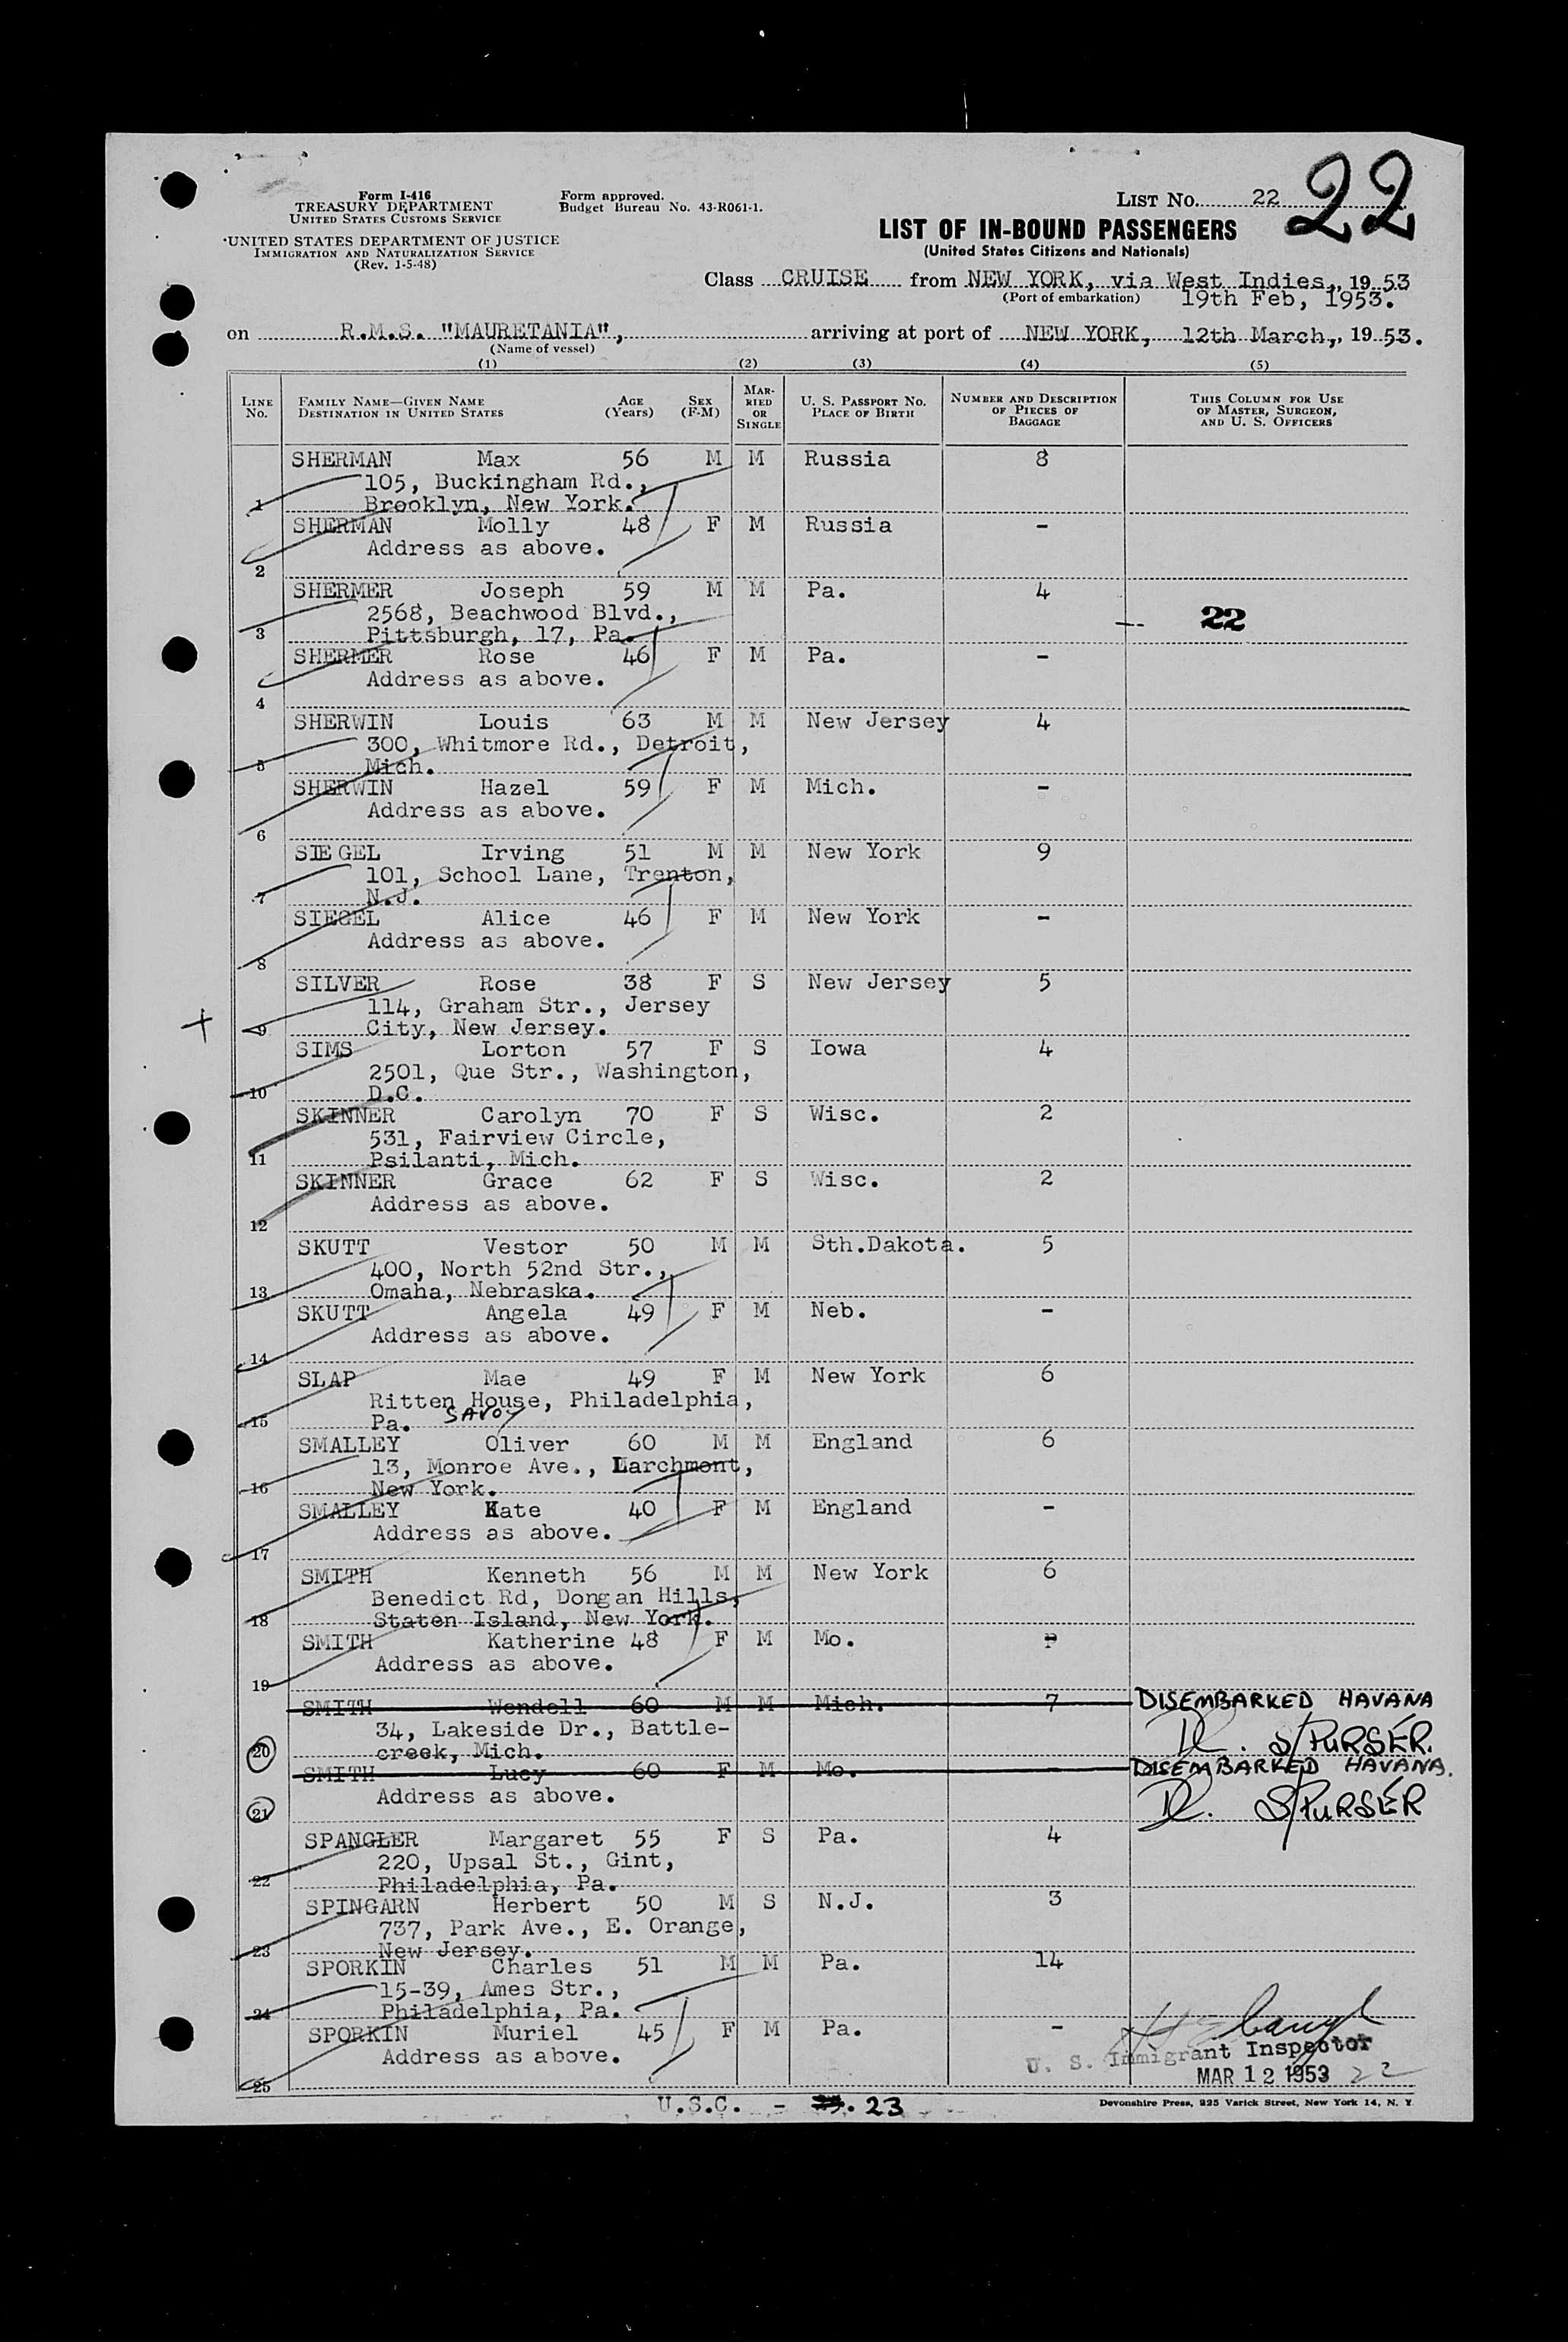 22
Form I-416
TREASURY DEPARTMENT
UNITED STATES CUSTOMS SERVICE
UNITED STATES DEPARTMENT OF JUSTICE
IMMIGRATION AND NATURALIZATION SERVICE
(Rev. 1-5-48)
Form approved.
Budget Bureau No. 43-R061-1.
LIST NO. 22
LIST OF IN-BOUND PASSENGERS
(United States Citizens and Nationals)
Class CRUISE from NEW YORK, via West Indies, 1953
(Port of embarkation) 19th Feb, 1953.
on R.M.S. "MAURETANIA", arriving at port of NEW YORK, 12th March, 1953.
(Name of vessel)
(1) (2) (3) (4) (5)
LINE No. FAMILY NAME—GIVEN NAME DESTINATION IN UNITED STATES AGE (Years) SEX (F-M) MARRIED OR SINGLE U. S. PASSPORT NO. PLACE OF BIRTH NUMBER AND DESCRIPTION OF PIECES OF BAGGAGE THIS COLUMN FOR USE OF MASTER, SURGEON, AND U. S. OFFICERS
SHERMAN Max 56 M M Russia 8
105, Buckingham Rd.,
1 Brooklyn, New York.
SHERMAN Molly 48 F M Russia -
Address as above.
2
SHERMER Joseph 59 M M Pa. 4
2568, Beachwood Blvd., 22
3 Pittsburgh, 17, Pa.
SHERMER Rose 46 F M Pa. -
Address as above.
4
SHERWIN Louis 63 M M New Jersey 4
300, Whitmore Rd., Detroit,
5 Mich.
SHERWIN Hazel 59 F M Mich. -
Address as above.
6
SIEGEL Irving 51 M M New York 9
101, School Lane, Trenton,
7 N.J.
SIEGEL Alice 46 F M New York -
Address as above.
8
SILVER Rose 38 F S New Jersey 5
114, Graham Str., Jersey
9 City, New Jersey.
SIMS Lorton 57 F S Iowa 4
2501, Que Str., Washington,
10 D.C.
SKINNER Carolyn 70 F S Wisc. 2
531, Fairview Circle,
11 Psilanti, Mich.
SKINNER Grace 62 F S Wisc. 2
Address as above.
12
SKUTT Vestor 50 M M Sth.Dakota. 5
400, North 52nd Str.,
13 Omaha, Nebraska.
SKUTT Angela 49 F M Neb. -
Address as above.
14
SLAP Mae 49 F M New York 6
Ritten House, Philadelphia,
15 Pa. SAVOY
SMALLEY Oliver 60 M M England 6
13, Monroe Ave., Larchmont,
16 New York.
SMALLEY Kate 40 F M England -
Address as above.
17
SMITH Kenneth 56 M M New York 6
Benedict Rd, Dongan Hills,
18 Staten Island, New York.
SMITH Katherine 48 F M Mo.
Address as above.
19
SMITH Wendell 60 M M Mich. 7 DISEMBARKED HAVANA
34, Lakeside Dr., Battle-
20 creek, Mich. S/PURSER.
SMITH Lucy 60 F M Mo. - DISEMBARKED HAVANA.
Address as above. S/PURSER
21
SPANGLER Margaret 55 F S Pa. 4
220, Upsal St., Gint,
22 Philadelphia, Pa.
SPINGARN Herbert 50 M S N.J. 3
737, Park Ave., E. Orange,
23 New Jersey.
SPORKIN Charles 51 M M Pa. 14
15-39, Ames Str.,
24 Philadelphia, Pa.
SPORKIN Muriel 45 F M Pa. -
Address as above. U. S. Immigrant Inspector
25 MAR 12 1953 22
U.S.C. - 23
Devonshire Press, 225 Varick Street, New York 14, N. Y.